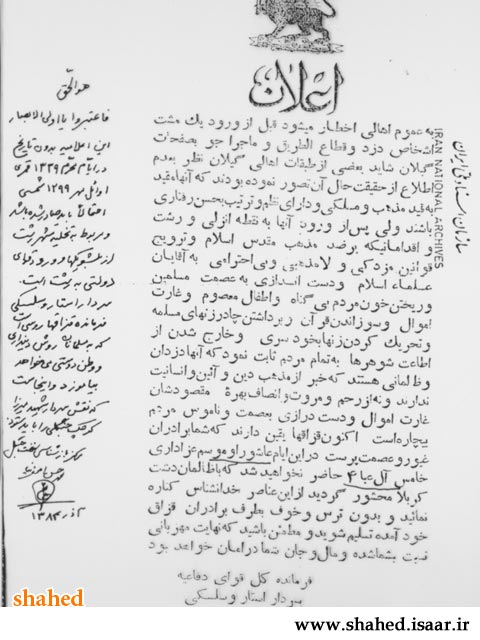 اعلان
به عموم اهالی اخطار میشود قبل از ورود یك مشت
اشخاص دزد و قطاع الطریق و ماجرا جو بصفحات
گیلان شاید بعضی از طبقات اهالی گیلان نظر بعدم
اطلاع از حقیقت حال آن تصور نموده بودند که آنها مقید
به قید مذهب و مسلكی و دارای طهر و ترتیب بحس رفتاری
باشند ولی پس از ورود آنها به نقطه انزلی و رشت
و اقداماتیکه برضد مذهب مقدس اسلام و ترویج
قوانین مزدکی و لامذهبی و بی احترامی به آقایان
علماء اسلام ودست اندازی به عصمت مسلمین
و ریختن خون مردم بی گناه و اطفال معصوم و غارت
اموال و سوزاندن قرآن و برداشتن چادر زنهای مسلمه
و تحریك کردن زنها بخود سری و خارج شدن از
اطاعت شوهرها به تمام مردم ثابت نمود که آنها دزدان
و ظالمانی هستند که خبر از مذهب دین و آئین و انسانیت
ندارند و نه از رحم و مروت و انصاف بهرهٔ مقصودشان
غارت اموال و دست درازی بعصمت و ناموس مردم
بیچاره است اکنون قزاقها یقین دارند که شما برادران
غیور و عصمت پرست در این ایام عاشورا و موسم عزاداری
خامس آل عبا ۴ حاضر نخواهید شد که باظالمان دشت
کربلا محشور گردید از این عناصر خدانشناس کناره
نمائید و بدون ترس و خوف بطرف برادران قزاق
خود آمده تسلیم شوید و مطمئن باشید که نهایت مهربانی
نسبت بشما شده و مال و جان شما درامان خواهد بود
فرمانده کل قوای دفاعیه
سردار استار وسلسکی
سازمان اسناد ملی ایران
IRAN NATIONAL ARCHIVES
هو الحق
فاعتبروا یا اولی الابصار
این اعلامیه بدون تاریخ
در ایام محرم ۱۳۳۹ قمری
اوائل مهر ۱۲۹۹ شمسی
احتمالاً باید صادر شده باشد
و مربوط به تخلیه شهر رشت
از بلشویکها و ورود قوای
دولتی به رشت است.
سردار استاروسلسکی
فرمانده قزاقها روسی است
که به مسلمین روش دینداری
و وطن دوستی می خواهد
بیاموزد و اینجاست
که نقش سردار شهید میرزا
کوچک جنگلی را باید ستود.
آذر ۱۳۸۴
shahed
www.shahed.isaar.ir